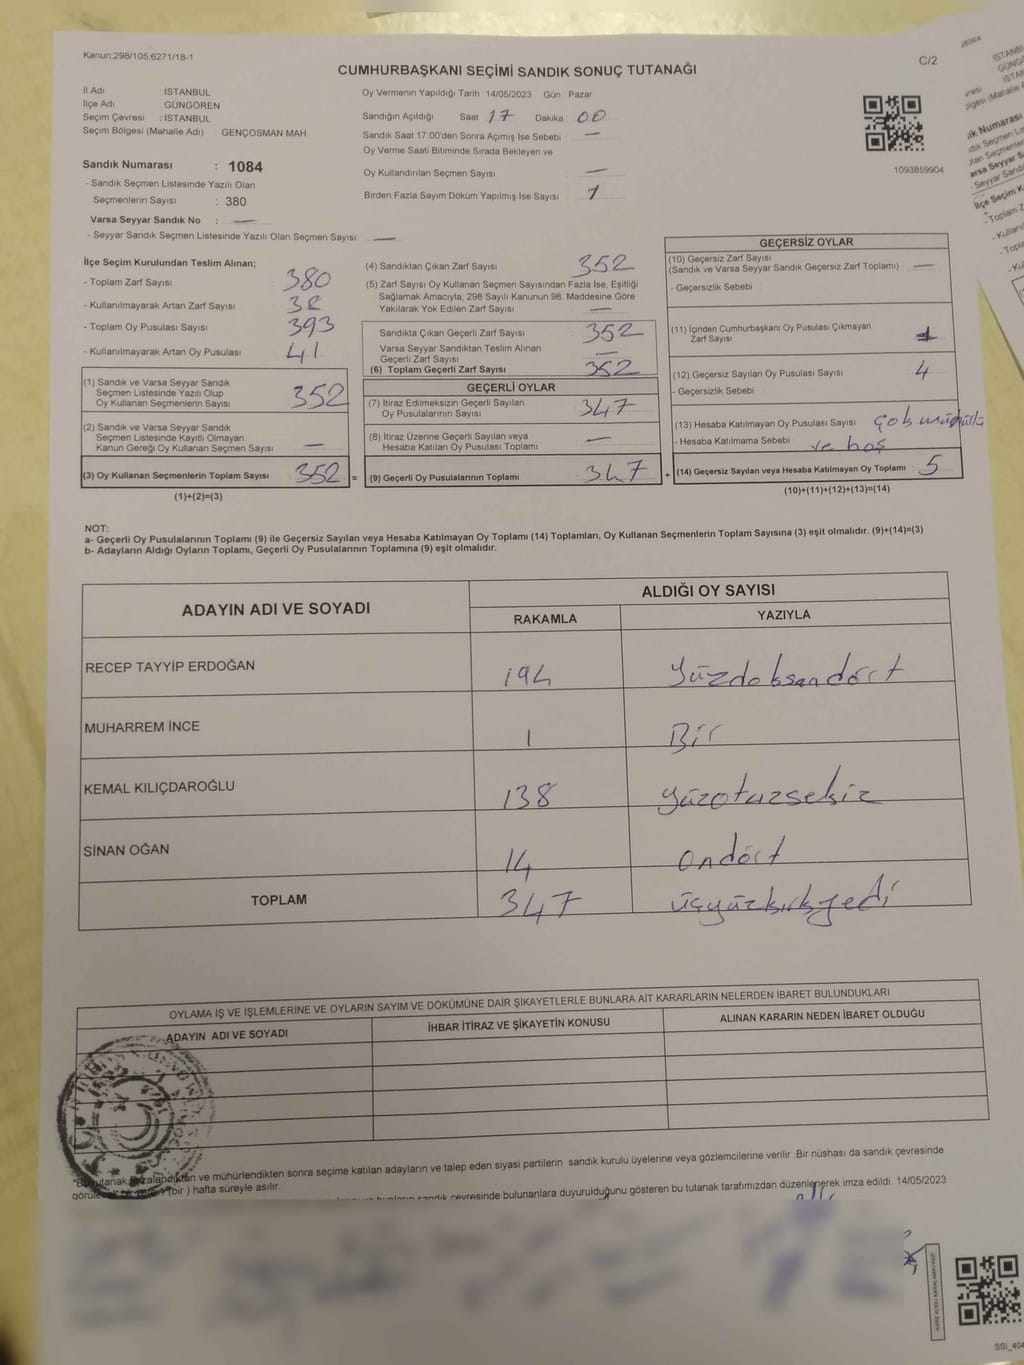 Kanun:298/105,6271/18-1
C/2
CUMHURBAŞKANI SEÇİMİ SANDIK SONUÇ TUTANAĞI
İl Adı : İSTANBUL
İlçe Adı GÜNGÖREN
Seçim Çevresi : İSTANBUL
Seçim Bölgesi (Mahalle Adı) : GENÇOSMAN MAH.
Sandık Numarası : 1084
- Sandık Seçmen Listesinde Yazılı Olan
Seçmenlerin Sayısı : 380
Varsa Seyyar Sandık No : —
- Seyyar Sandık Seçmen Listesinde Yazılı Olan Seçmen Sayısı: —
Oy Vermenin Yapıldığı Tarih : 14/05/2023 Gün : Pazar
Sandığın Açıldığı Saat 17 Dakika 00
Sandık Saat 17:00'den Sonra Açımış İse Sebebi —
Oy Verme Saati Bitiminde Sırada Bekleyen ve
Oy Kullandırılan Seçmen Sayısı : —
Birden Fazla Sayım Döküm Yapılmış İse Sayısı : 1
1093859904
İlçe Seçim Kurulundan Teslim Alınan;
- Toplam Zarf Sayısı : 380
- Kullanılmayarak Artan Zarf Sayısı : 38
- Toplam Oy Pusulası Sayısı : 393
- Kullanılmayarak Artan Oy Pusulası : 41
(1) Sandık ve Varsa Seyyar Sandık
Seçmen Listesinde Yazılı Olup
Oy Kullanan Seçmenlerin Sayısı : 352
(2) Sandık ve Varsa Seyyar Sandık
Seçmen Listesinde Kayıtlı Olmayan
Kanun Gereği Oy Kullanan Seçmen Sayısı : —
(3) Oy Kullanan Seçmenlerin Toplam Sayısı : 352 =
(1)+(2)=(3)
(4) Sandıktan Çıkan Zarf Sayısı : 352
(5) Zarf Sayısı Oy Kullanan Seçmen Sayısından Fazla İse, Eşitliği
Sağlamak Amacıyla; 298 Sayılı Kanunun 98. Maddesine Göre
Yakılarak Yok Edilen Zarf Sayısı : —
Sandıkta Çıkan Geçerli Zarf Sayısı : 352
Varsa Seyyar Sandıktan Teslim Alınan
Geçerli Zarf Sayısı : —
(6) Toplam Geçerli Zarf Sayısı : 352
GEÇERLİ OYLAR
(7) İtiraz Edilmeksizin Geçerli Sayılan
Oy Pusulalarının Sayısı : 347
(8) İtiraz Üzerine Geçerli Sayılan veya
Hesaba Katılan Oy Pusulası Toplamı : —
(9) Geçerli Oy Pusulalarının Toplamı : 347 +
GEÇERSİZ OYLAR
(10) Geçersiz Zarf Sayısı
(Sandık ve Varsa Seyyar Sandık Geçersiz Zarf Toplamı) : —
- Geçersizlik Sebebi :
(11) İçinden Cumhurbaşkanı Oy Pusulası Çıkmayan
Zarf Sayısı : 1
(12) Geçersiz Sayılan Oy Pusulası Sayısı : 4
- Geçersizlik Sebebi :
(13) Hesaba Katılmayan Oy Pusulası Sayısı : çok mühürlü
- Hesaba Katılmama Sebebi : ve boş
(14) Geçersiz Sayılan veya Hesaba Katılmayan Oy Toplamı : 5
(10)+(11)+(12)+(13)=(14)
NOT:
a- Geçerli Oy Pusulalarının Toplamı (9) ile Geçersiz Sayılan veya Hesaba Katılmayan Oy Toplamı (14) Toplamları, Oy Kullanan Seçmenlerin Toplam Sayısına (3) eşit olmalıdır. (9)+(14)=(3)
b- Adayların Aldığı Oyların Toplamı, Geçerli Oy Pusulalarının Toplamına (9) eşit olmalıdır.
ADAYIN ADI VE SOYADI
ALDIĞI OY SAYISI
RAKAMLA YAZIYLA
RECEP TAYYİP ERDOĞAN 194 yüzdoksandört
MUHARREM İNCE 1 Bir
KEMAL KILIÇDAROĞLU 138 yüzotuzsekiz
SİNAN OĞAN 14 ondört
TOPLAM 347 üçyüzkırkyedi
OYLAMA İŞ VE İŞLEMLERİNE VE OYLARIN SAYIM VE DÖKÜMÜNE DAİR ŞİKAYETLERLE BUNLARA AİT KARARLARIN NELERDEN İBARET BULUNDUKLARI
ADAYIN ADI VE SOYADI İHBAR İTİRAZ VE ŞİKAYETİN KONUSU ALINAN KARARIN NEDEN İBARET OLDUĞU
ve mühürlendikten sonra seçime katılan adayların ve talep eden siyasi partilerin sandık kurulu üyelerine veya gözlemcilerine verilir. Bir nüshası da sandık çevresinde
(bir ) hafta süreyle asılır.
sandık çevresinde bulunanlara duyurulduğunu gösteren bu tutanak tarafımızdan düzenlenerek imza edildi. 14/05/2023